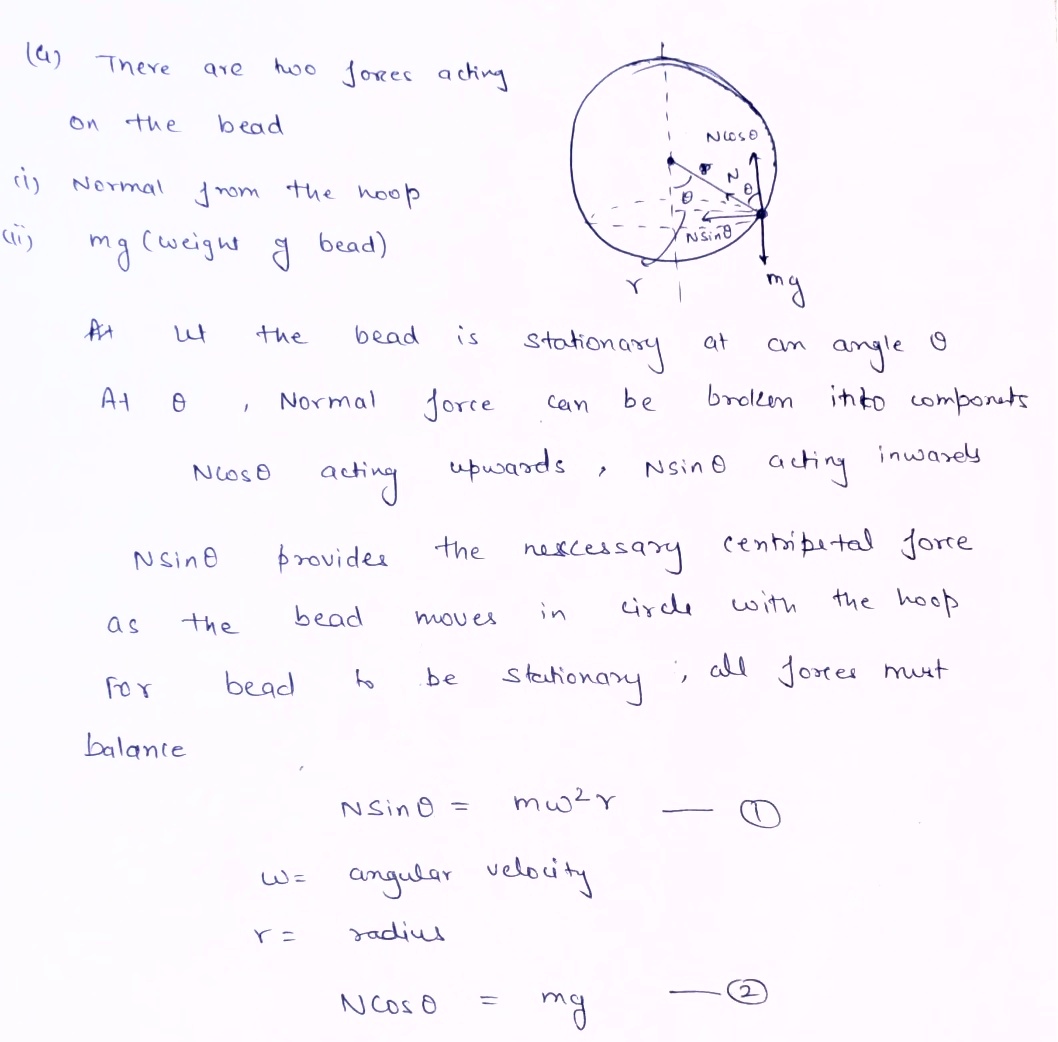 (a) There are two forces acting
on the bead
(i) Normal from the hoop
(ii) mg (weight of bead)
Ncosθ
N
θ
θ
Nsinθ
r
mg
At let the bead is stationary at an angle θ
At θ, Normal force can be broken into componets
Ncosθ acting upwards, Nsinθ acting inwards
Nsinθ provides the nescessary centripetal force
as the bead moves in circle with the hoop
For bead to be stationary, all forces must
balance
Nsinθ = mω²r — ①
ω = angular velocity
r = radius
Ncosθ = mg — ②